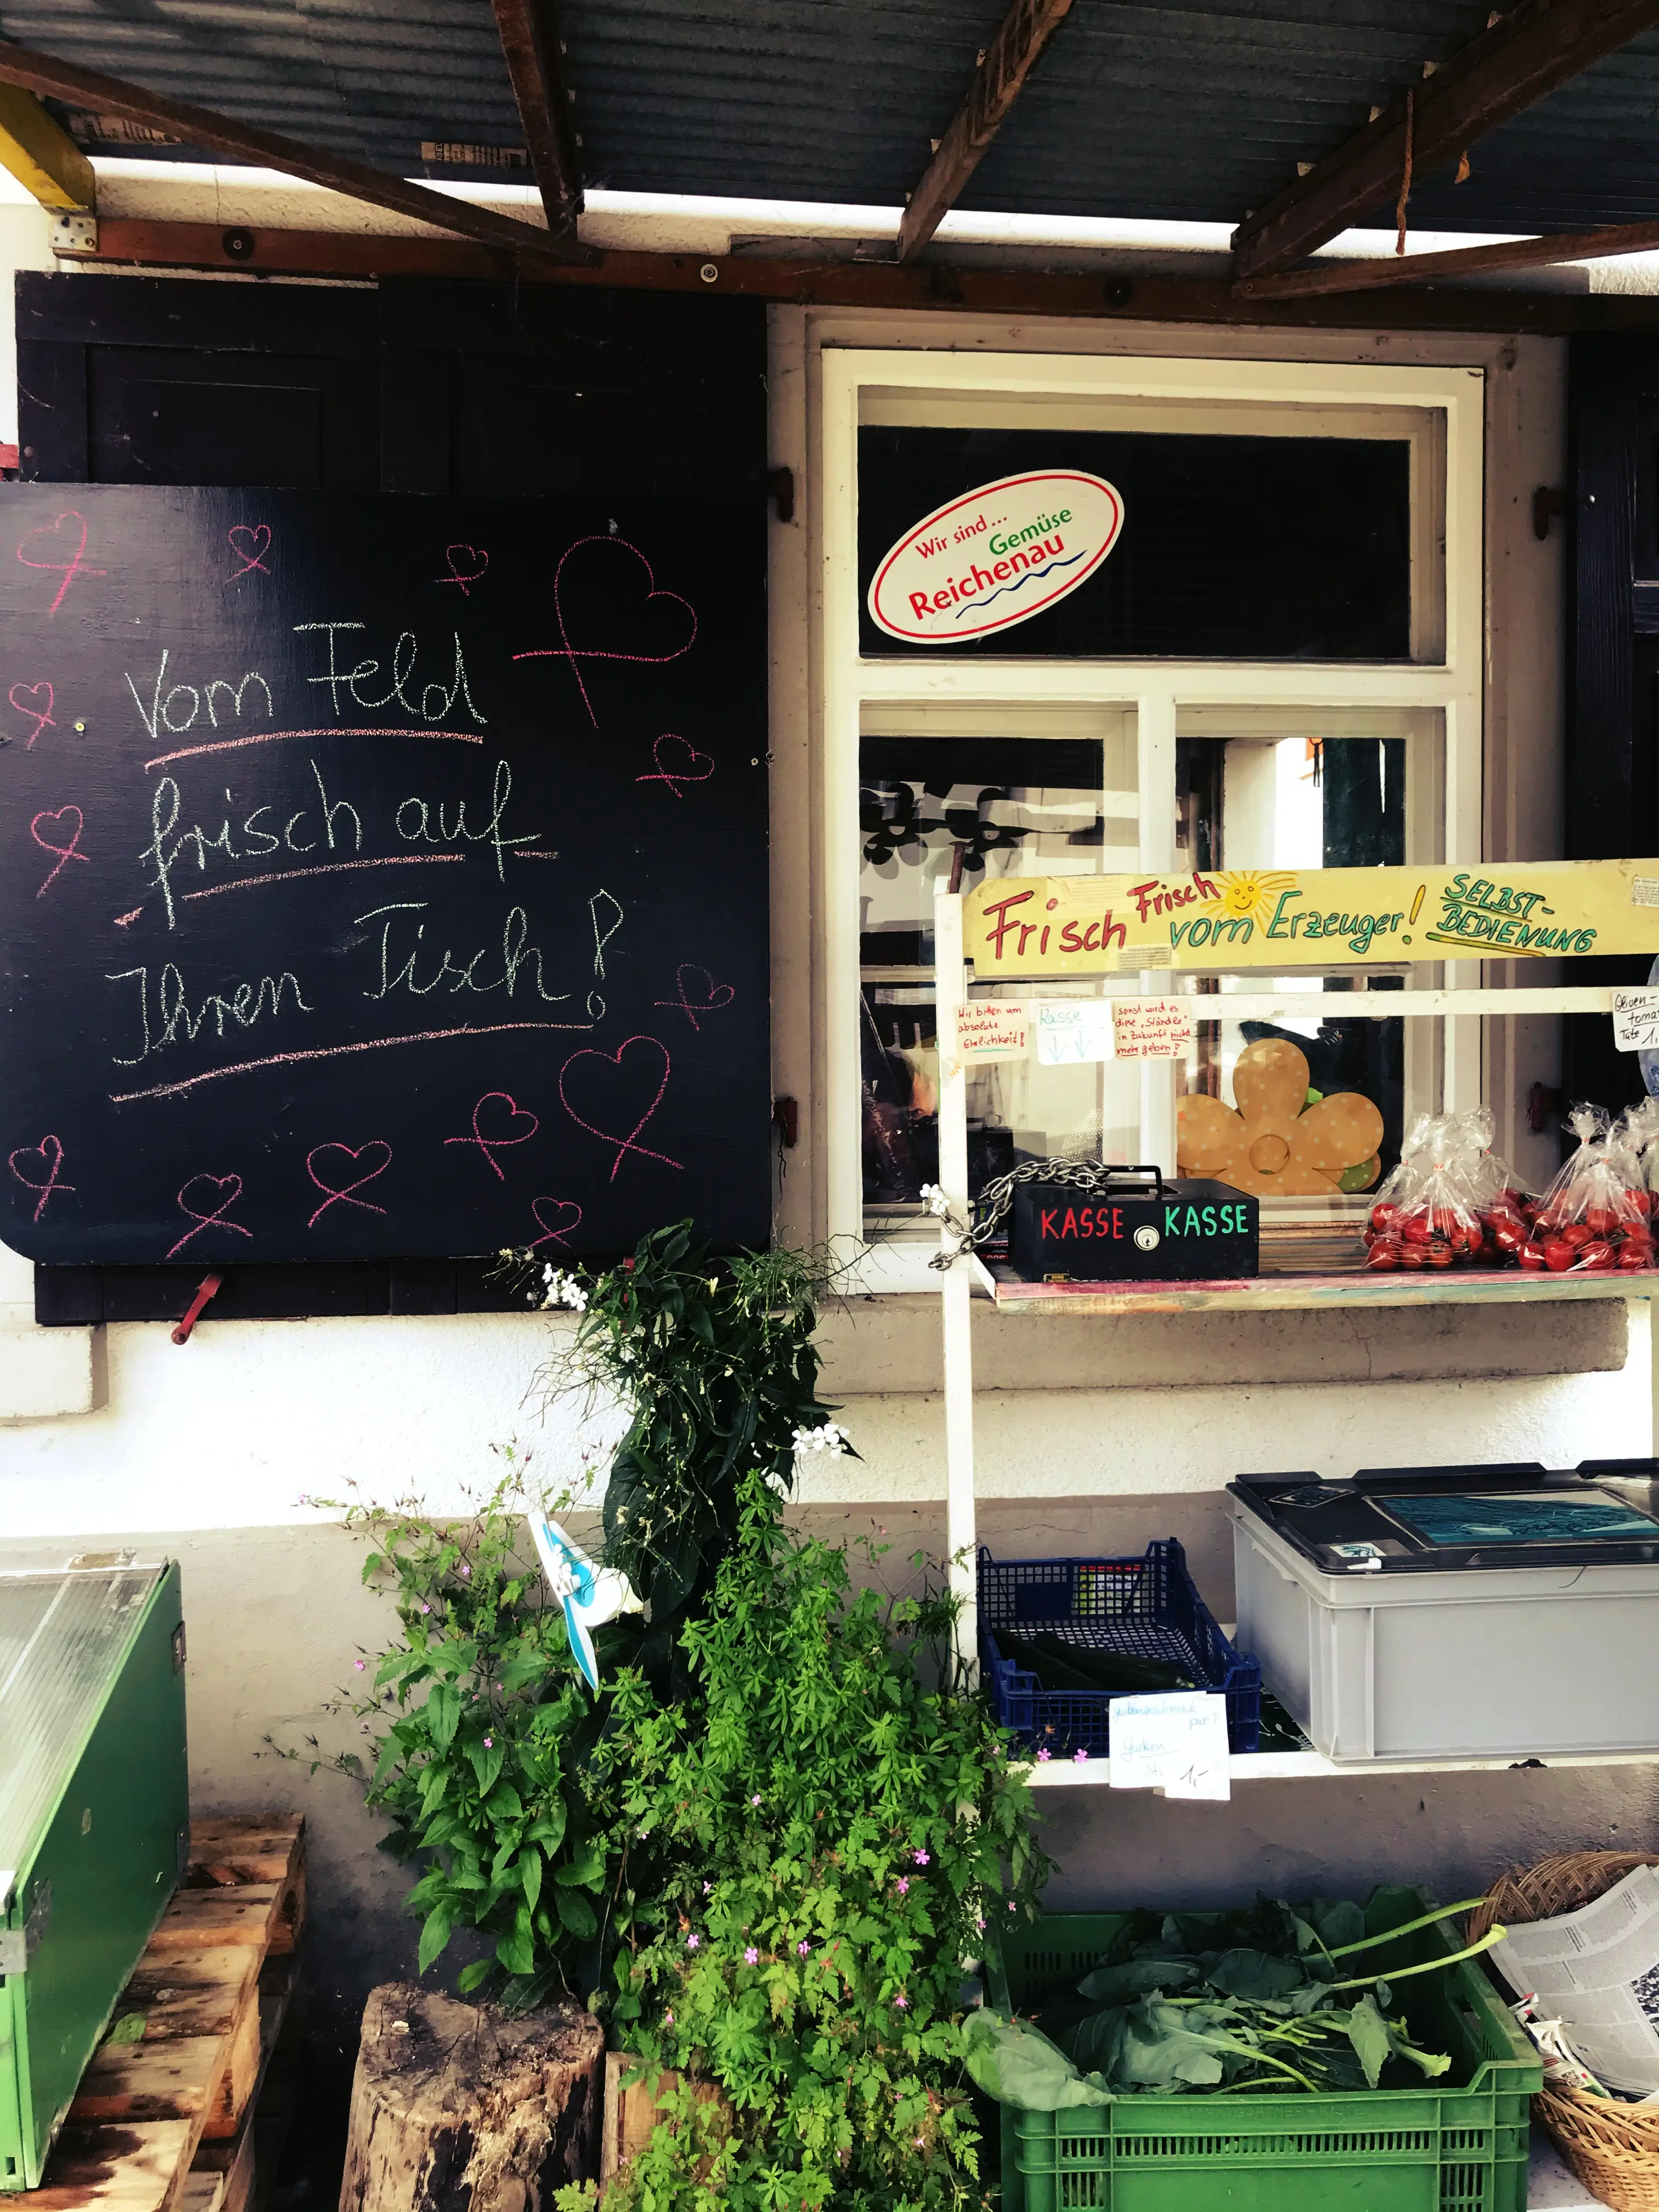 Vom Feld
frisch auf
Ihren Tisch!
Wir sind...
Gemüse
Reichenau
Frisch Frisch
vom Erzeuger!
SELBST-
BEDIENUNG
Wir bitten um
absolute
Ehrlichkeit!
Kasse
sonst wird es
diese "Ständle"
in Zukunft nicht
mehr geben!
Oliven-
toma
Tüte 1,
KASSE KASSE
pur!
Gurken
St. 1,-